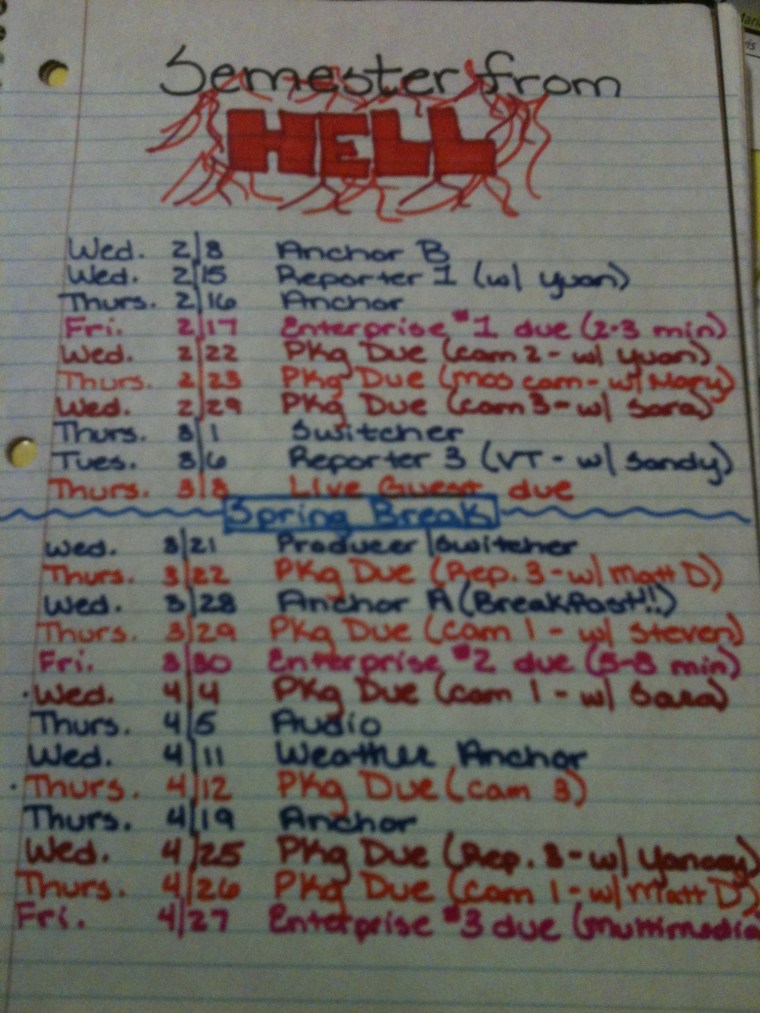 Semester from
HELL
Wed. 2/8 Anchor B
Wed. 2/15 Reporter 1 (w/ Yuan)
Thurs. 2/16 Anchor
Fri. 2/17 Enterprise #1 due (2-3 min)
Wed. 2/22 Pkg Due (cam 2 - w/ Yuan)
Thurs. 2/23 Pkg Due (mos cam - w/ Mary)
Wed. 2/29 Pkg Due (cam 3 - w/ Sara)
Thurs. 3/1 Switcher
Tues. 3/6 Reporter 3 (VT - w/ Sandy)
Thurs. 3/8 Live Guest due
Spring Break
Wed. 3/21 Producer/Switcher
Thurs. 3/22 Pkg Due (Rep. 3 - w/ Matt D)
Wed. 3/28 Anchor A (Breakfast!!)
Thurs. 3/29 Pkg Due (cam 1 - w/ Steven)
Fri. 3/30 Enterprise #2 due (5-8 min)
Wed. 4/4 Pkg Due (cam 1 - w/ Sara)
Thurs. 4/5 Audio
Wed. 4/11 Weather Anchor
Thurs. 4/12 Pkg Due (cam 3)
Thurs. 4/19 Anchor
Wed. 4/25 Pkg Due (Rep. 3 - w/ Yancey)
Thurs. 4/26 Pkg Due (cam 1 - w/ Matt D)
Fri. 4/27 Enterprise #3 due (multimedia